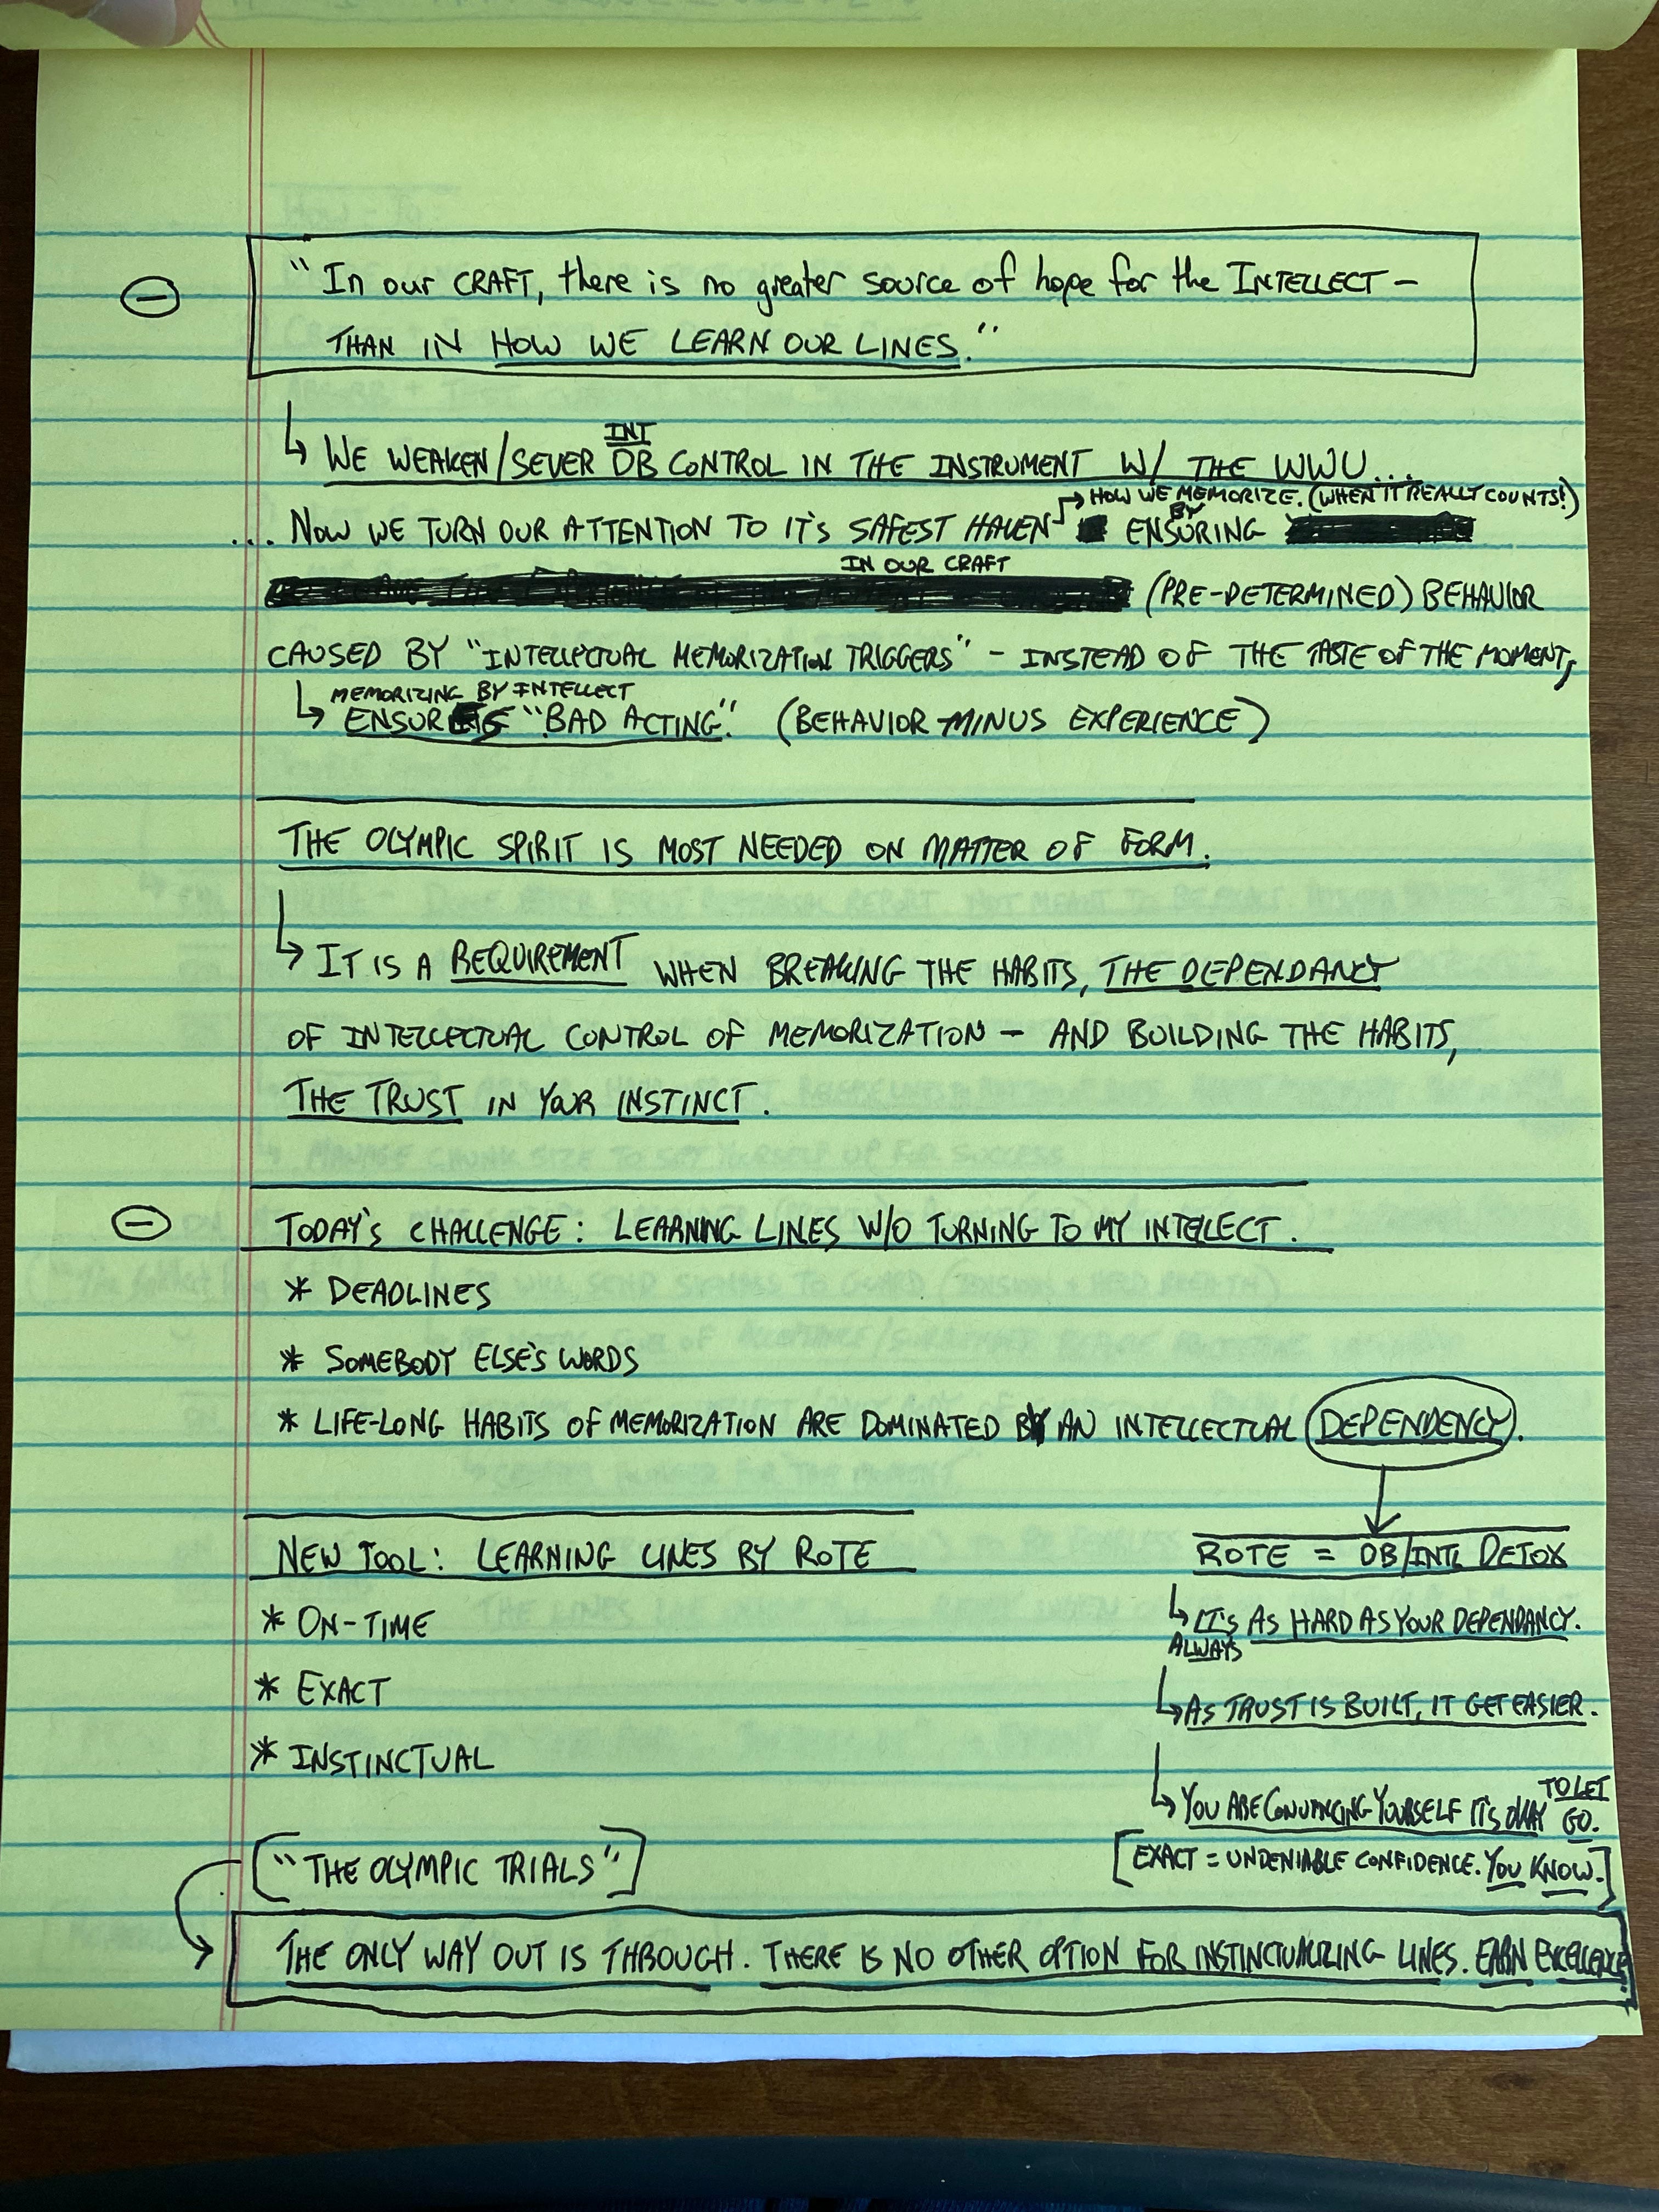 "In our CRAFT, there is no greater source of hope for the INTELLECT –
THAN IN HOW WE LEARN OUR LINES."
↳ WE WEAKEN/SEVER INT DB CONTROL IN THE INSTRUMENT W/ THE WWU...
→ HOW WE MEMORIZE. (WHEN IT REALLY COUNTS!)
... NOW WE TURN OUR ATTENTION TO IT'S SAFEST HAVEN BY ENSURING
IN OUR CRAFT
(PRE-DETERMINED) BEHAVIOR
CAUSED BY "INTELLECTUAL MEMORIZATION TRIGGERS" – INSTEAD OF THE TASTE OF THE MOMENT,
MEMORIZING BY INTELLECT
↳ ENSURES "BAD ACTING." (BEHAVIOR MINUS EXPERIENCE)
THE OLYMPIC SPIRIT IS MOST NEEDED ON MATTER OF FORM.
↳ IT IS A REQUIREMENT WHEN BREAKING THE HABITS, THE DEPENDANCY
OF INTELLECTUAL CONTROL OF MEMORIZATION – AND BUILDING THE HABITS,
THE TRUST IN YOUR INSTINCT.
TODAY'S CHALLENGE: LEARNING LINES W/O TURNING TO MY INTELLECT.
* DEADLINES
* SOMEBODY ELSE'S WORDS
* LIFE-LONG HABITS OF MEMORIZATION ARE DOMINATED BY AN INTELLECTUAL DEPENDENCY.
NEW TOOL: LEARNING LINES BY ROTE
* ON-TIME
* EXACT
* INSTINCTUAL
ROTE = DB/INTL DETOX
↳ IT'S ALWAYS AS HARD AS YOUR DEPENDANCY.
↳ AS TRUST IS BUILT, IT GET EASIER.
↳ YOU ARE CONVINCING YOURSELF IT'S OKAY TO LET GO.
[EXACT = UNDENIABLE CONFIDENCE. YOU KNOW.]
["THE OLYMPIC TRIALS"]
THE ONLY WAY OUT IS THROUGH. THERE IS NO OTHER OPTION FOR INSTINCTUALIZING LINES. EARN EXCELLENCE